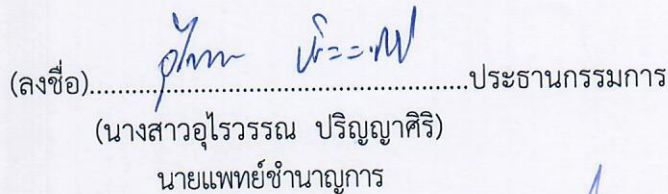 (ลงชื่อ)................................................ประธานกรรมการ
(นางสาวอุไรวรรณ ปริญญาศิริ)
นายแพทย์ชำนาญการ